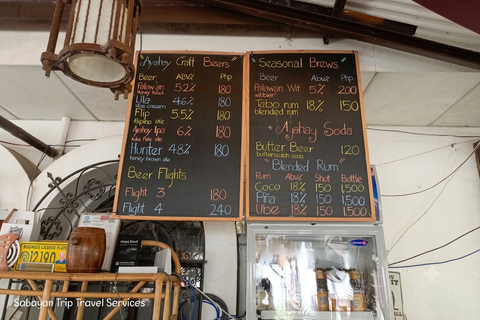 Ayahay Craft Beers
Beer ABV% Php
Palawan 5.2% 180
honey black
Lilla 4.6% 180
dale cream
Flip 5.5% 180
filipino ale
Ayahay Ipa 6% 180
india Pale Ale
Hunter 4.8% 180
honey brown ale
Beer Flights
Flight 3 180
Flight 4 240
"Seasonal Brews"
Beer ABV% Php
Palawan Wit 5% 200
witbier
Tabo rum 18% 150
blended rum
"Ayahay Soda"
Butter Beer 120
butterscotch soda
"Blended Rum"
Rum ABV% Shot Bottle
Coco 18% 150 1,500
Piña 18% 150 1,500
Ube 18% 150 1,500
BUSINESS LICENSE PLATE
12190
Sabayan Trip Travel Services